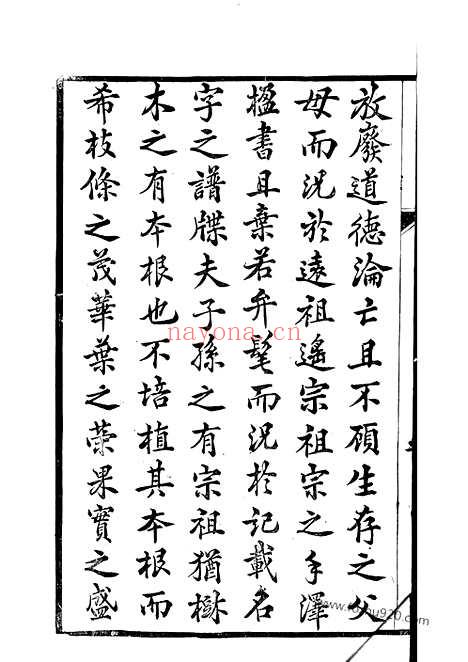 放廢道德淪亡且不顧生存之父
母而況於遠祖遙宗祖宗之手澤
楹書且棄若弁髦而況於記載名
字之譜牒夫子孫之有宗祖猶樹
木之有本根也不培植其本根而
希枝條之茂華葉之榮果實之盛
nayona.cn